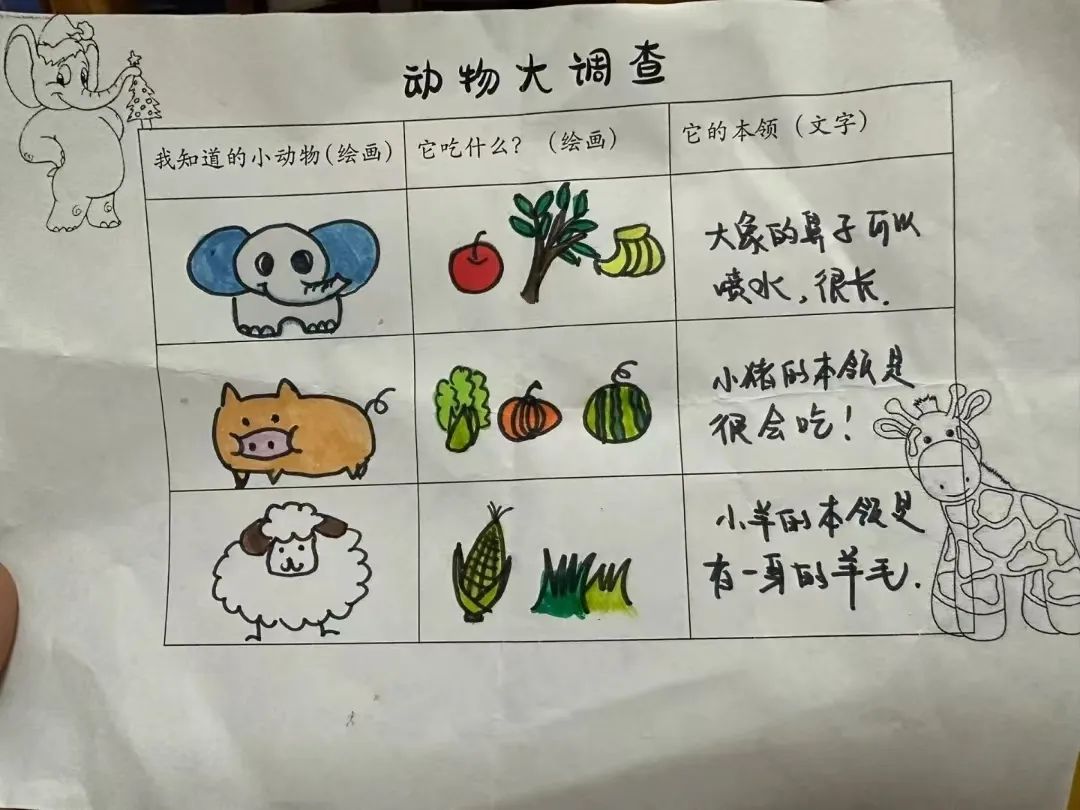 动物大调查
我知道的小动物(绘画)
它吃什么？（绘画）
它的本领（文字）
大象的鼻子可以
喷水,很长.
小猪的本领是
很会吃！
小羊的本领是
有一身的羊毛.